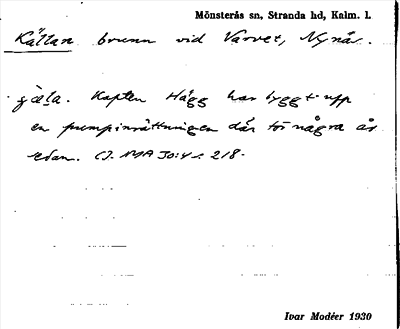 Mönsterås sn, Stranda hd, Kalm. l.
Källan brunn vid Varvet, Nynäs.
Kapten Hägg har byggt upp
en pumpinrättningen där för några år
sedan. Cf. NMA 30:4 s. 218.
Ivar Modéer 1930